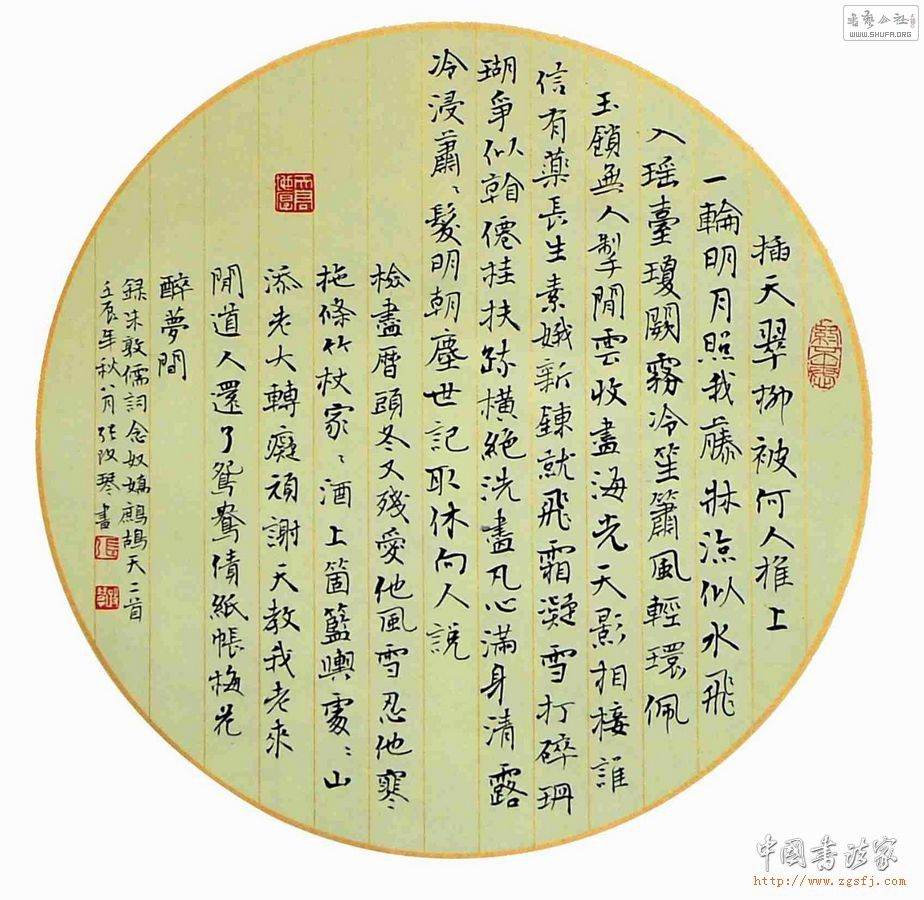 插天翠柳被何人推上
一輪明月照我藤牀涼似水飛
入瑶臺瓊闕霧冷笙簫風輕環佩
玉鎖無人掣閒雲收盡海光天影相接誰
信有藥長生素娥新鍊就飛霜凝雪打碎珊
瑚爭似翰僊桂扶疏橫絶洗盡凡心滿身清露
冷浸蕭〻髮明朝塵世記取休向人説
檢盡曆頭冬又殘愛他風雪忍他寒
拖條竹杖家〻酒上箇籃輿處〻山
添老大轉癡頑謝天教我老來
閒道人還了鴛鴦債紙帳梅花
醉夢間
録朱敦儒詞念奴嬌鷓鴣天二首
壬辰年秋八月張改琴書
書藝公社
WWW.SHUFA.ORG
中國書法家
http://www.zgsfj.com